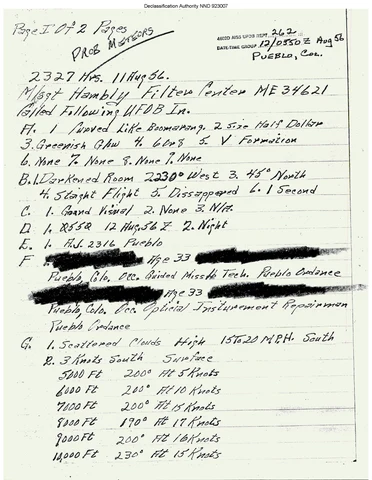 Declassification Authority NND 923007
Page 1 Of 2 Pages
PROB METEORS
262
DATE-TIME GROUP 12/0550Z Aug 56
PUEBLO, COL.
2327 Hrs. 11 Aug 56.
M/Sgt Hambly Filter Center ME 34621
Called Following UFOB In.
A. 1 Curved Like Boomarang. 2 Size Half Dollar
3. Greenish Glow 4. 6 or 8 5. V Formation
6. None 7. None 8. None 9. None
B. 1. Darkened Room 2 230° West 3. 45° North
4. Staight Flight 5. Dissappered 6. 1 Second
C. 1. Ground Visual 2. None 3. N/A.
D 1. 0550 12 Aug 56 Z 2. Night
E. 1. 2316 Pueblo
F Age 33
Pueblo, Colo, Occ. Guided Missle Tech. Pueblo Ordance
Age 33
Pueblo, Colo. Occ Optical Insturement Repairman
Pueblo Ordance
G. 1. Scattered Clouds High 15 To 20 M.P.H. South
2. 3 Knots South Surface
5000 Ft 200° At 5 Knots
6000 Ft 200° At 10 Knots
7000 Ft 200° At 15 Knots
8000 Ft 190° At 17 Knots
9000 Ft 200° At 16 Knots
10,000 Ft 230° At 15 Knots